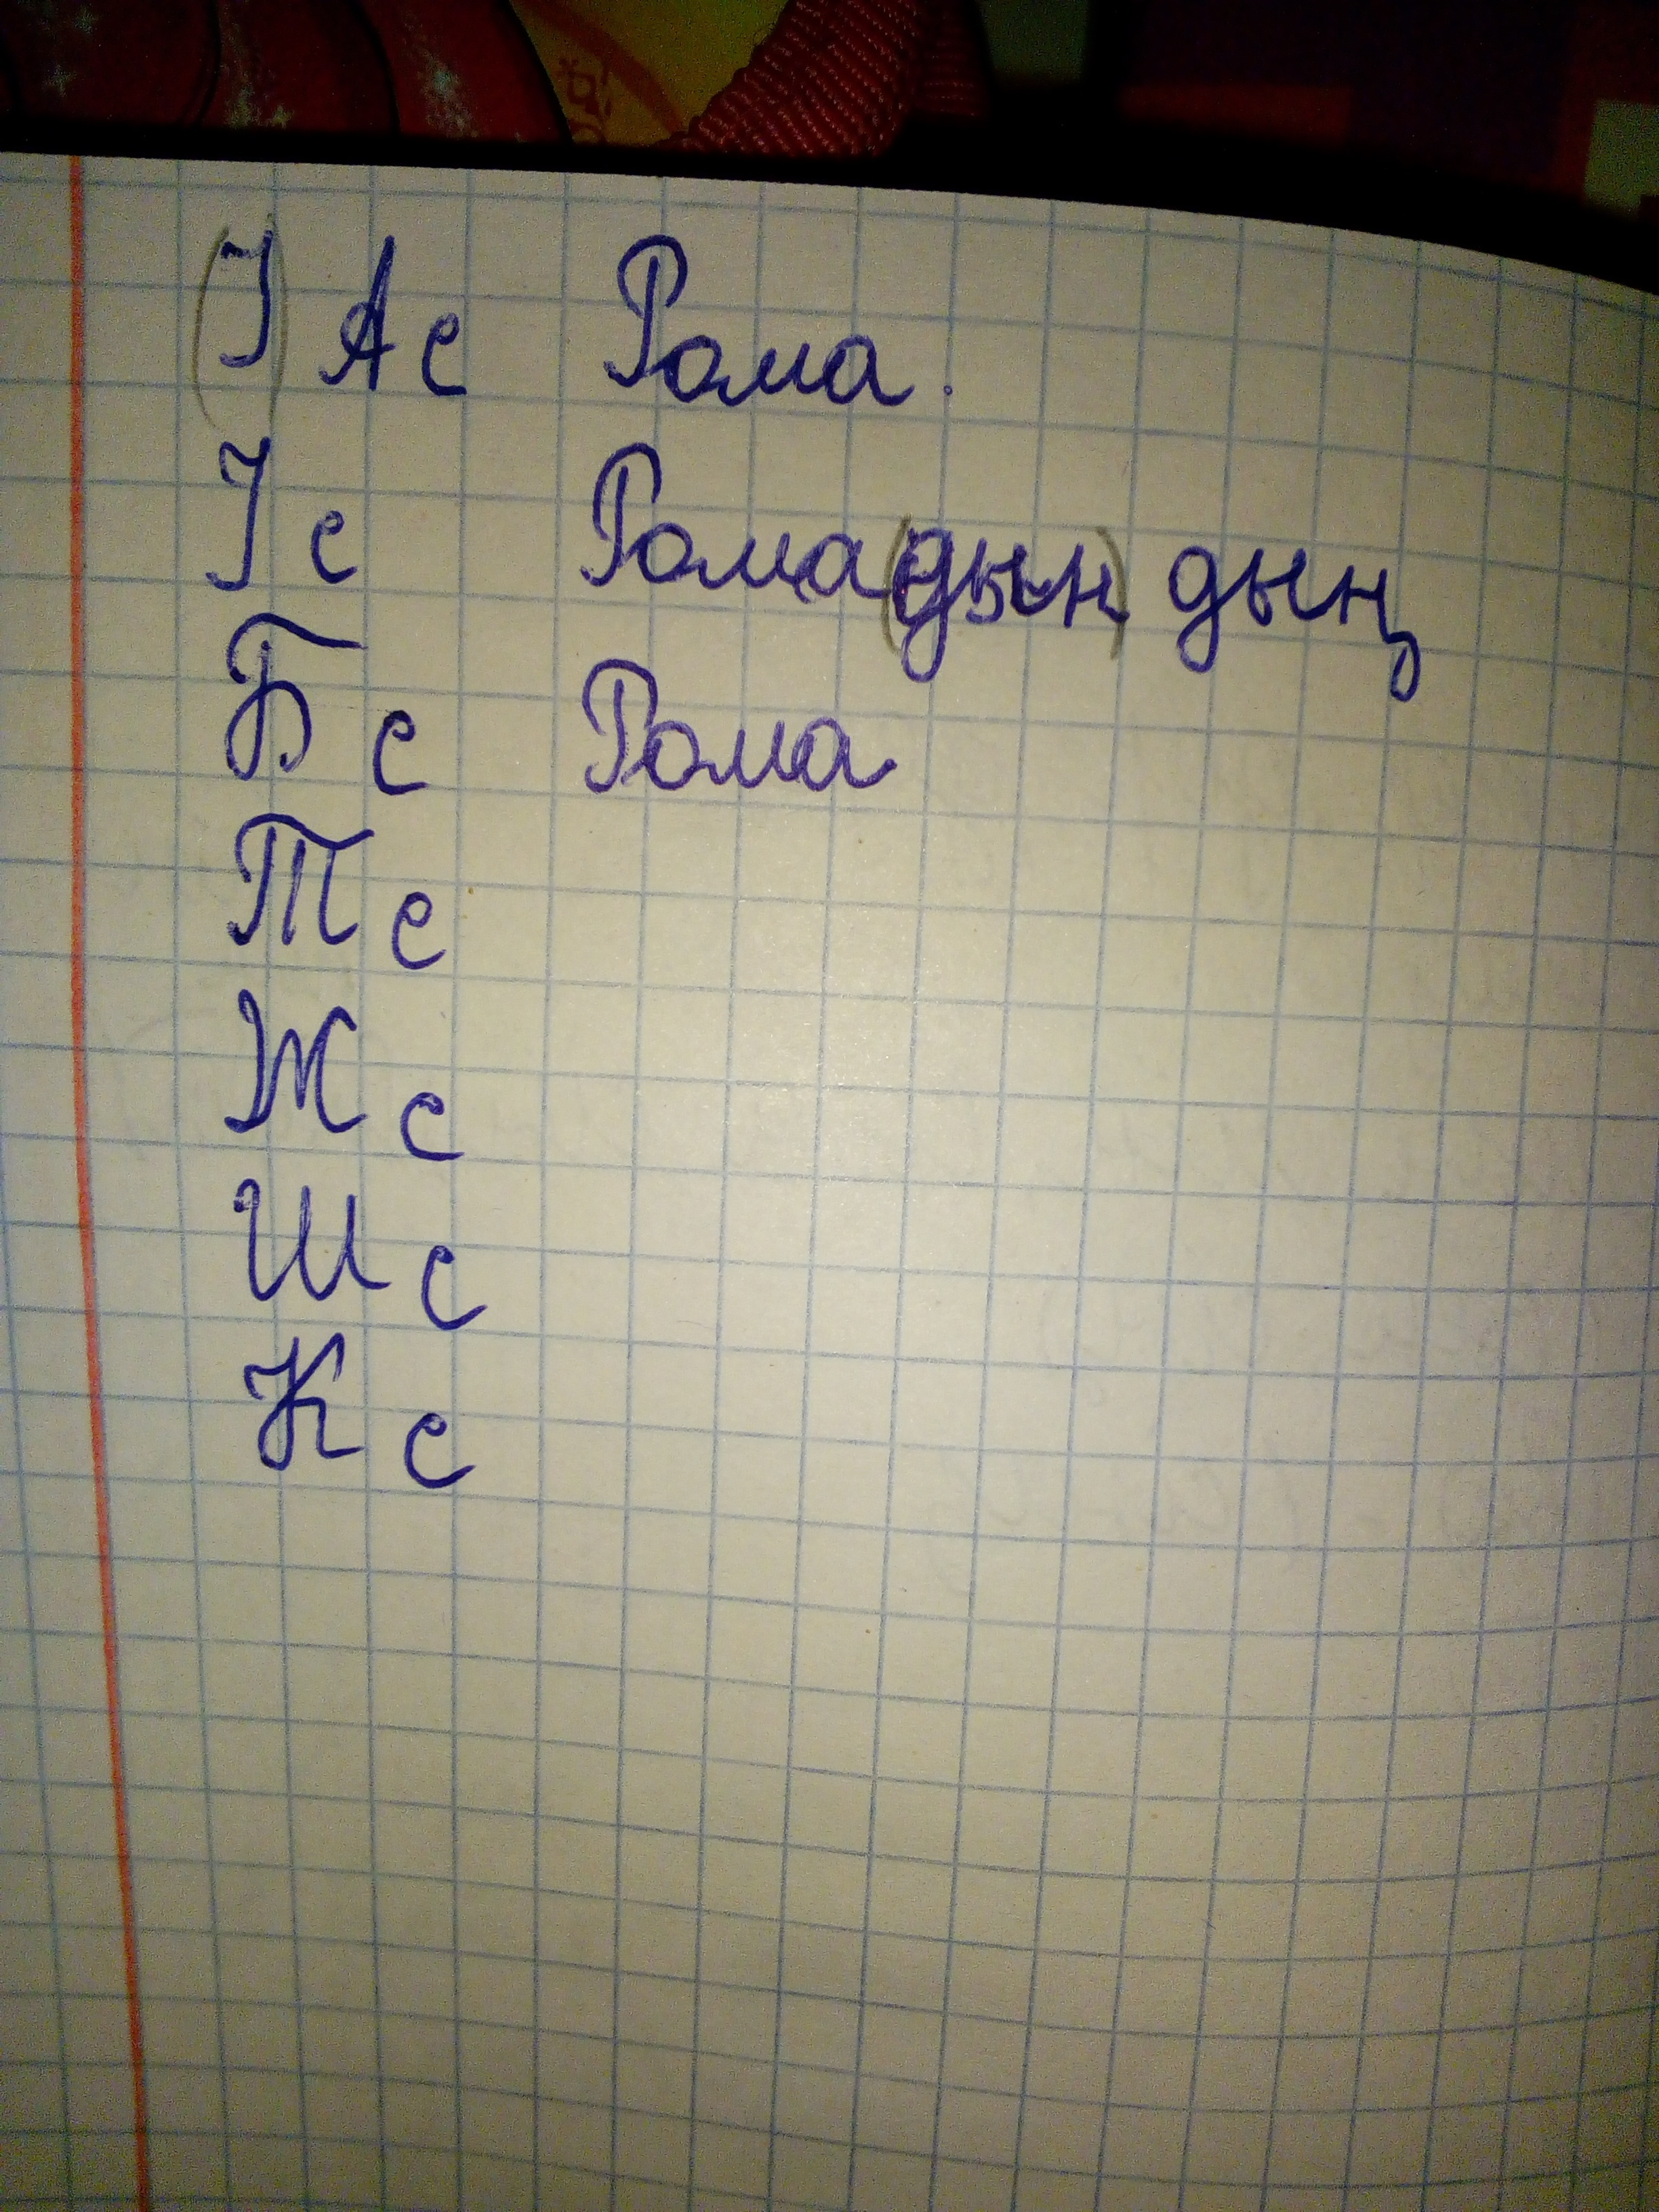 (І) Ас Рома.
Іс Рома(дын) дың
Бс Рома
Тс
Жс
Шс
Кс